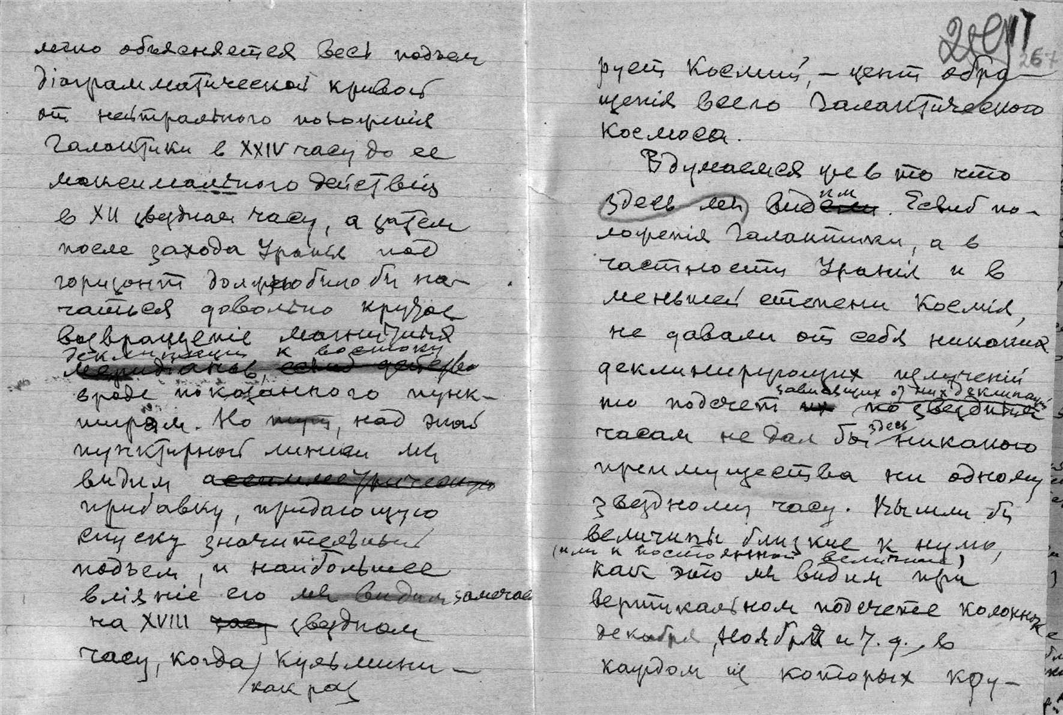 легко объясняется весь подъем
діаграмматической кривой
от нейтрального положенія
Галактики в XXIV часу до ее
максимальнаго действія
в XII звездном часу, а затем
после захода Ураніи под
горизонт должно было бы на-
чаться довольно крутое
возвращеніе магнитной
деклинаціи к востоку
вроде показанного пунк-
тиром. Но, над этой
пунктирной линией мы
видим
прибавку, придающую
спуску значительный
подъем, и наибольшее
вліяніе его замечаем
на XVIII звездном
часу, когда как раз кульмини-
267
рует Космій, – центр обра-
щенія всего Галактического
Космоса.
Вдумаемся же в то что
здесь мы видим. Если б по-
ложенія Галактики, а в
частности Ураніи и в
меньшей степени Космія,
не давали от себя никаких
деклинирующих излученій
то подсчет зависящих от них деклинаций по звездным
часам не дал бы здесь никакого
преимущества ни одному
звездному часу. Вышли бы
величины близкие к нулю,
(или к постоянной величине)
как это мы видим при
вертикальном подсчете колонок
декабря, ноября и т. д., в
каждом из которых кру-